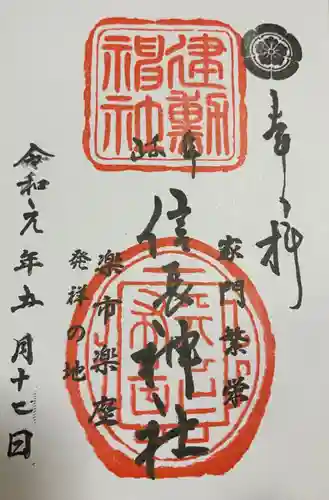 奉拝
建勲
神社
家門繁栄
信長神社
楽市楽座
発祥の地
令和元年五月十七日